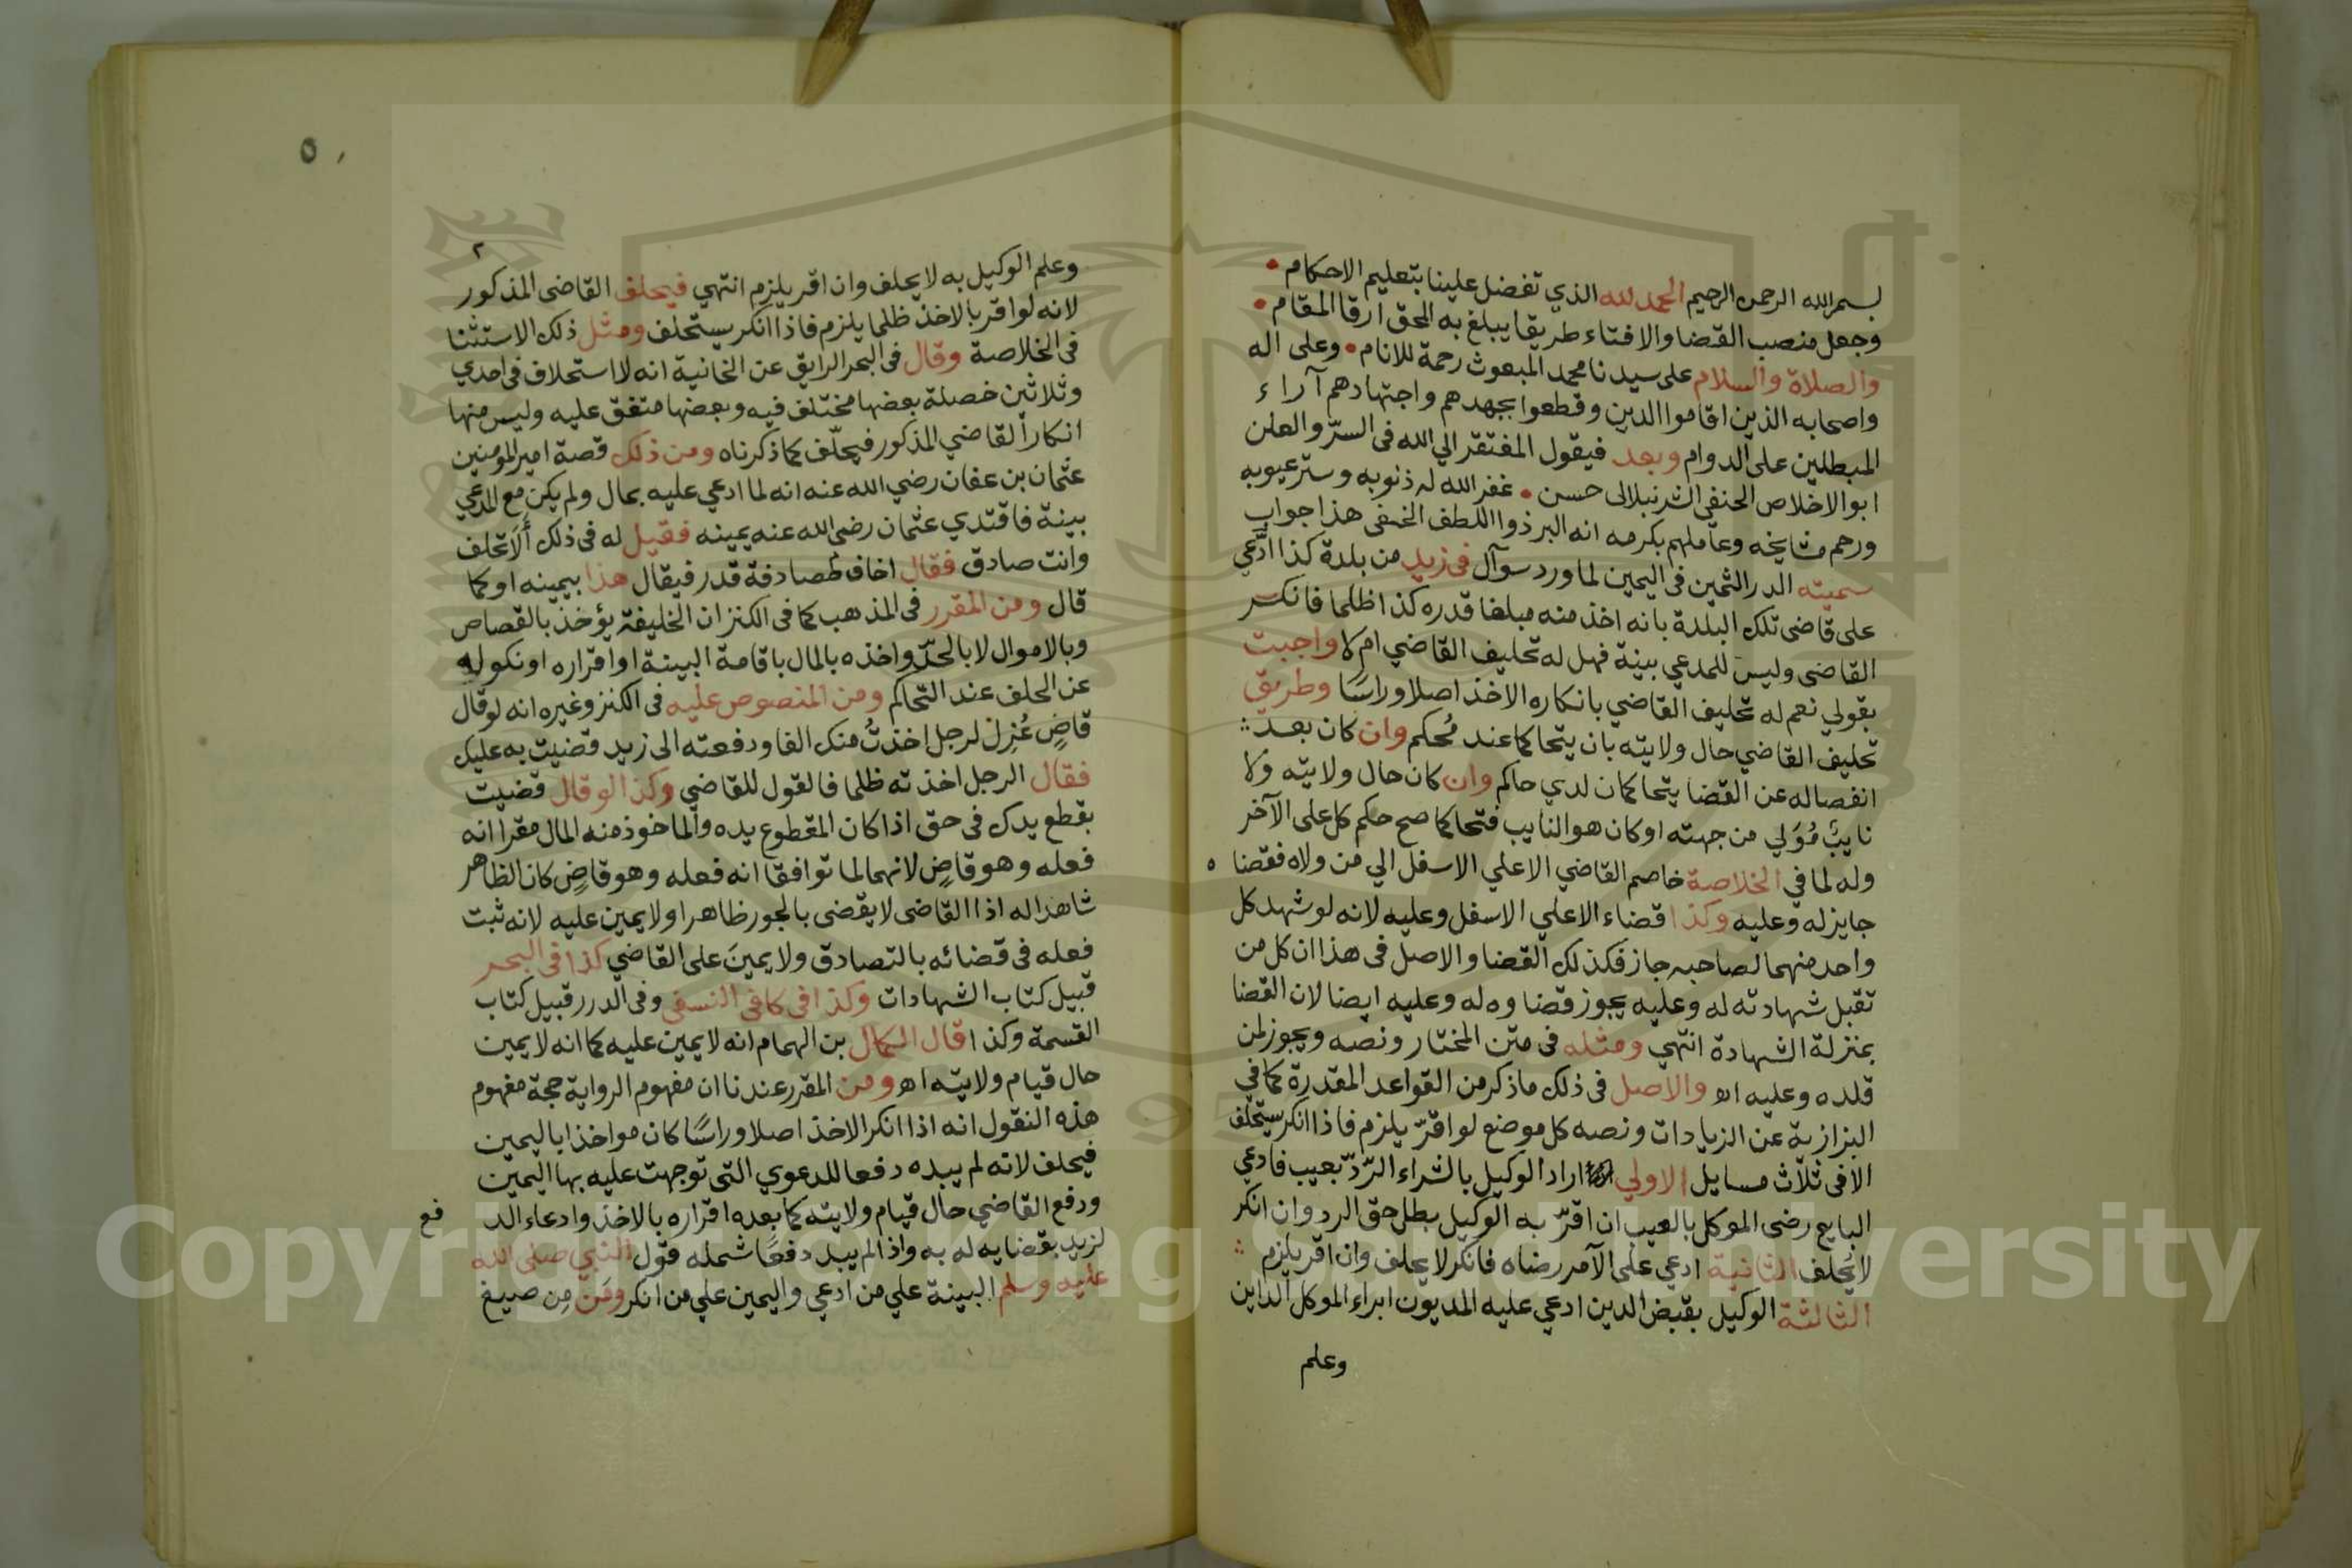 بسم الله الرحمن الرحيم الحمد لله الذي تفضل علينا بتعليم الاحكام •
وجعل منصب القضا والافتاء طريقا يبلغ به المحق ارقا المقام •
والصلاة والسلام على سيدنا محمد المبعوث رحمة للانام • وعلى اله
واصحابه الذين اقاموا الدين وقطعوا بجهدهم واجتهادهم آراء
المبطلين على الدوام وبعد فيقول المفتقر الي الله في السرّ والعلن
ابو الاخلاص الحنفي الشرنبلالى حسن • غفر الله له ذنوبه وستر عيوبه
ورحم مشايخه وعاملهم بكرمه انه البر ذوا اللطف الخفى هذا جواب
سميته الدر الثمين فى اليمين لما ورد سوآل فى زيد من بلدة كذا ادّعي
على قاضى تلك البلدة بانه اخذ منه مبلغا قدره كذا ظلما فانكر
القاضى وليس للمدعي بينة فهل له تحليف القاضي ام لا واجبت
بقولي نعم له تحليف القاضي بانكاره الاخذ اصلا وراسًا وطريق
تحليف القاضي حال ولايته بان يتحاكما عند مُحكم وان كان بعد
انفصاله عن القضا يتحاكمان لدي حاكم وان كان حال ولايته ولا
نايبٌ مُوَلي من جهته او كان هو النايب فتحاكما صح حكم كل على الآخر
وله لما في الخلاصة خاصم القاضي الاعلي الاسفل الي من ولاه فقضا ه
جايز له وعليه وكذا قضاء الاعلي الاسفل وعليه لانه لو شهد كل
واحد منهما لصاحبه جاز فكذلك القضا والاصل فى هذا ان كل من
تقبل شهادته له وعليه يجوز قضاوه له وعليه ايضا لان القضا
بمنزلة الشهادة انتهي ومثله فى متن المختار ونصه ويجوز لمن
قلده وعليه اه والاصل فى ذلك ما ذكر من القواعد المقدرة كما في
البزازية عن الزيادات ونصه كل موضع لو اقرّ يلزم فاذا انكر يستحلف
الا فى ثلاث مسايل الاولي اراد الوكيل بالشراء الرّدّ بعيب فادعي
البايع رضى الموكل بالعيب ان اقرّ به الوكيل بطل حق الرد وان انكر
لا يُحلف الثانية ادعي على الآمر رضاه فانكر لا يحلف وان اقر يلزم
الثالثة الوكيل بقبض الدين ادعي عليه المديون ابراء الموكل الداين
وعلم
٥
٢
وعلم الوكيل به لا يحلف وان اقر يلزم انتهي فيحلف القاضى المذكور
لانه لو اقر بالاخذ ظلما يلزم فاذا انكر يستحلف ومثل ذلك الاستثنا
فى الخلاصة وقال فى البحر الرايق عن الخانية انه لا استحلاف فى احدي
وثلاثين خصلة بعضها مختلف فيه وبعضها متفق عليه وليس منها
انكار القاضي المذكور فيحلّف كما ذكرناه ومن ذلك قصة امير المومنين
عثمان بن عفان رضي الله عنه انه لما ادعي عليه بمال ولم يكن مع المدعي
بينة فاقتدي عثمان رضي الله عنه يمينه فقيل له فى ذلك ألَا تحلف
وانت صادق فقال اخاف مصادفة قدر فيقال هذا بيمينه او كما
قال ومن المقرر فى المذهب كما فى الكنز ان الخليفة يؤخذ بالقصاص
وبالاموال لا بالحدّ واخذه بالمال باقامة البينة او اقراره او نكوله
عن الحلف عند التحاكم ومن المنصوص عليه فى الكنز وغيره انه لو قال
قاضٍ عُزِل لرجل اخذتُ منك الفا ودفعته الى زيد قضيت به عليك
فقال الرجل اخذته ظلما فالقول للقاضي وكذا لو قال قضيت
بقطع يدك فى حق اذا كان المقطوع يده والماخوذ منه المال مقرا انه
فعله وهو قاضٍ لانهما لما توافقا انه فعله وهو قاضٍ كان الظاهر
شاهدا له اذ القاضى لا يقضى بالجور ظاهرا ولا يمين عليه لانه ثبت
فعله فى قضائه بالتصادق ولا يمينَ على القاضي كذا فى البحر
قبيل كتاب الشهادات وكذا فى كافى النسفى وفى الدرر قبيل كتاب
القسمة وكذا قال الكمال بن الهمام انه لا يمين عليه كما انه لا يمين
حال قيام ولايته اه ومن المقرر عندنا ان مفهوم الرواية حجة مفهوم
هذه النقول انه اذا انكر الاخذ اصلا وراسًا كان مواخذا باليمين
فيحلف لانه لم يبده دفعا للدعوي التى توجهت عليه بها اليمين
ودفع القاضي حال قيام ولايته كما بعده اقراره بالاخذ وادعاء الد فع
لزيد بقضايه له به واذا لم يبد دفعًا شمله قول النبي صلى الله
عليه وسلم البينة علي من ادعي واليمين علي من انكر ومَن مِن صيغ
Copyright © King Saud University